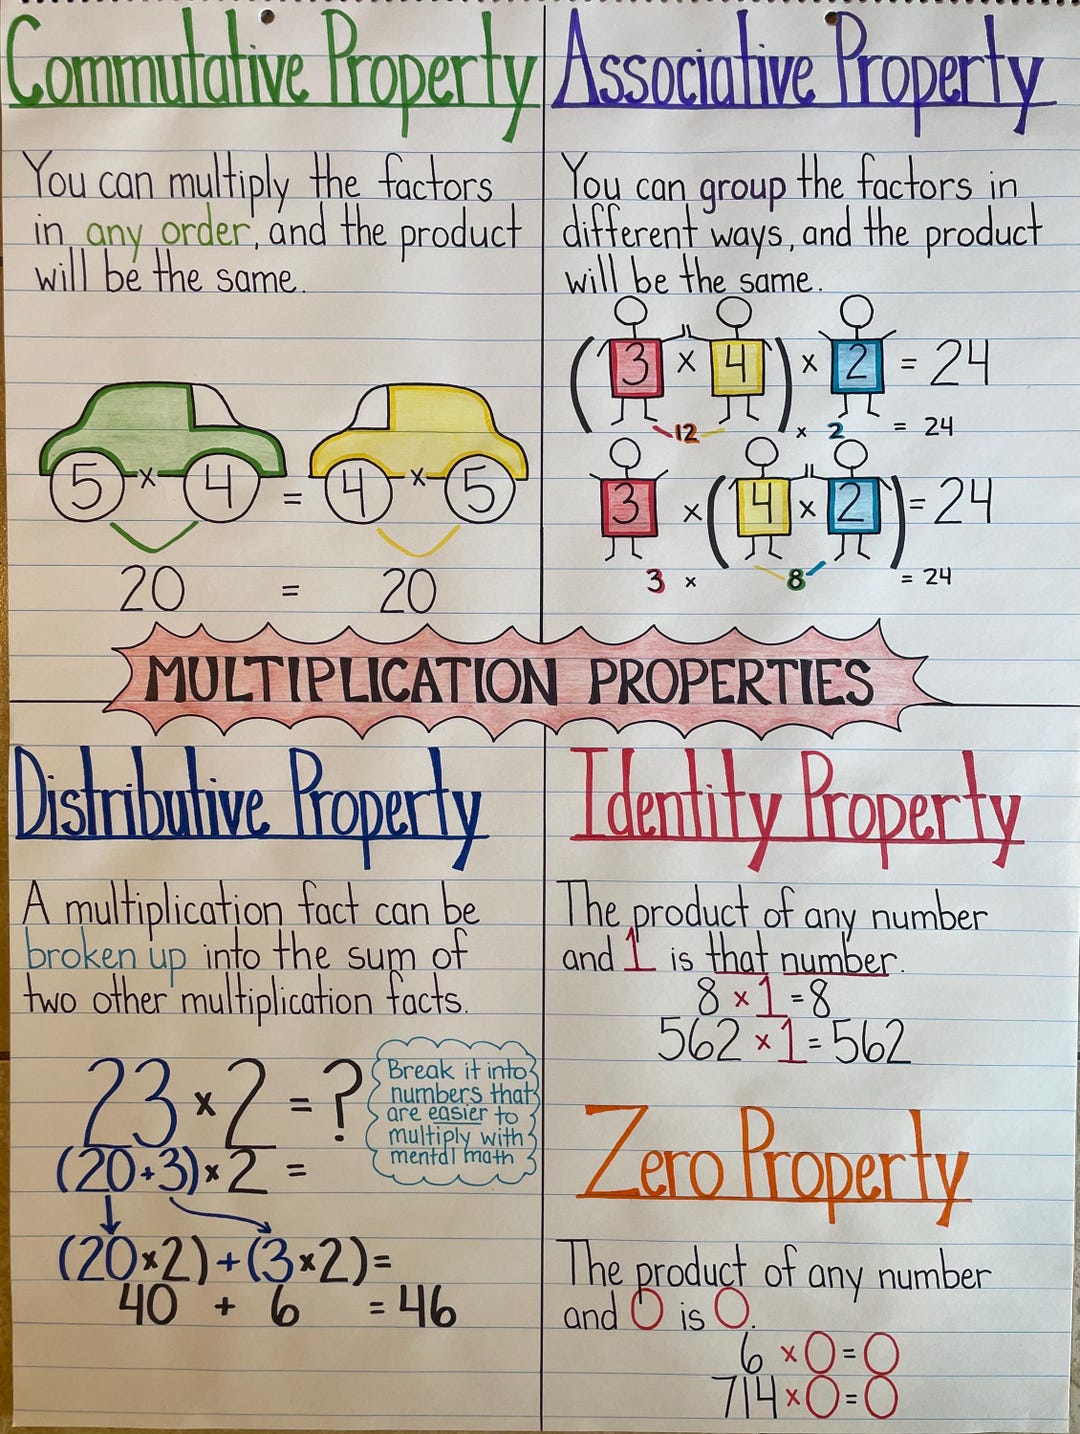 Commutative Property
You can multiply the factors
in any order, and the product
will be the same.
5 × 4 = 4 × 5
20 = 20
Associative Property
You can group the factors in
different ways, and the product
will be the same.
(3 × 4) × 2 = 24
12 × 2 = 24
3 × (4 × 2) = 24
3 × 8 = 24
MULTIPLICATION PROPERTIES
Distributive Property
A multiplication fact can be
broken up into the sum of
two other multiplication facts.
23 × 2 = ?
(20+3) × 2 =
(20×2) + (3×2) =
40 + 6 = 46
Break it into
numbers that
are easier to
multiply with
mental math
Identity Property
The product of any number
and 1 is that number.
8 × 1 = 8
562 × 1 = 562
Zero Property
The product of any number
and 0 is 0.
6 × 0 = 0
714 × 0 = 0